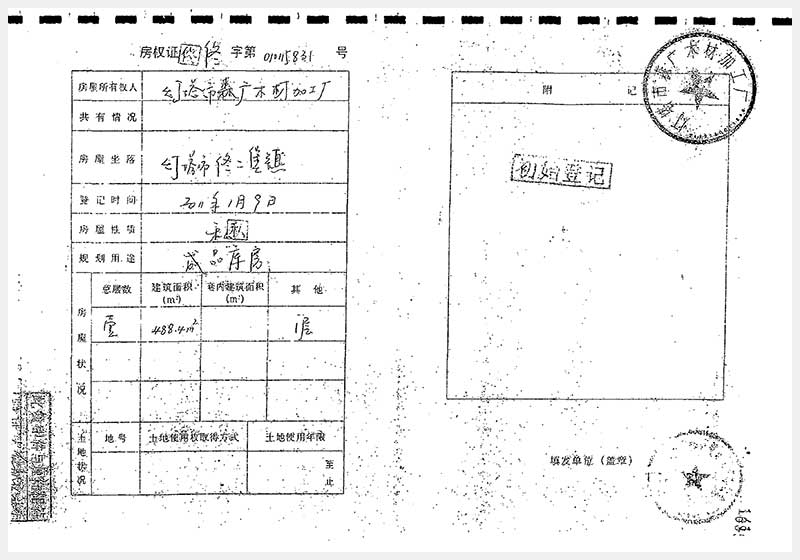 房权证 佟 字第 010115831 号
房屋所有权人 灯塔市森广木材加工厂
共有情况
房屋坐落 灯塔市佟二堡镇
登记时间 2011年1月9日
房屋性质
规划用途 成品库房
房屋状况
总层数 建筑面积(m²) 套内建筑面积(m²) 其他
壹 488.4m² 1层
土地状况
地号 土地使用权取得方式 土地使用年限
至
止
附 记
灯塔市森广木材加工厂
初始登记
填发单位(盖章)